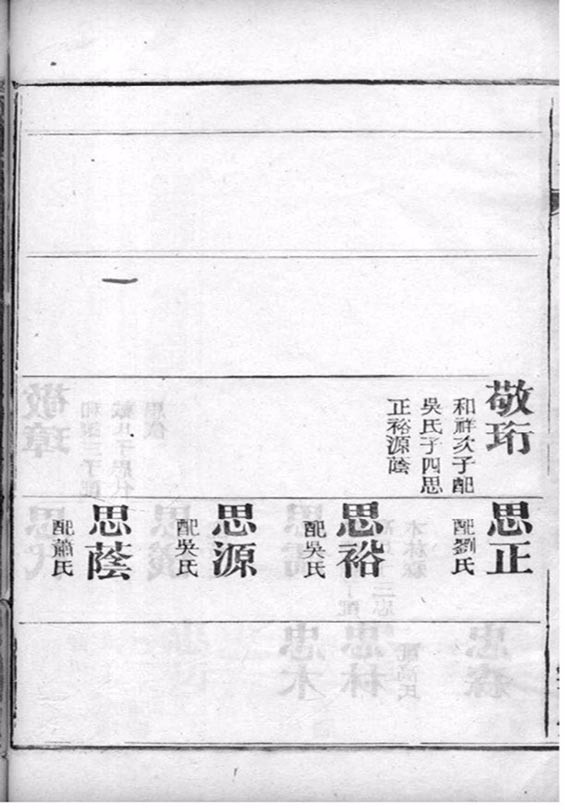 敬珩
和祥次子配
吳氏子四思
正裕源蔭
思正
配劉氏
思裕
配吳氏
思源
配吳氏
思蔭
配蕭氏